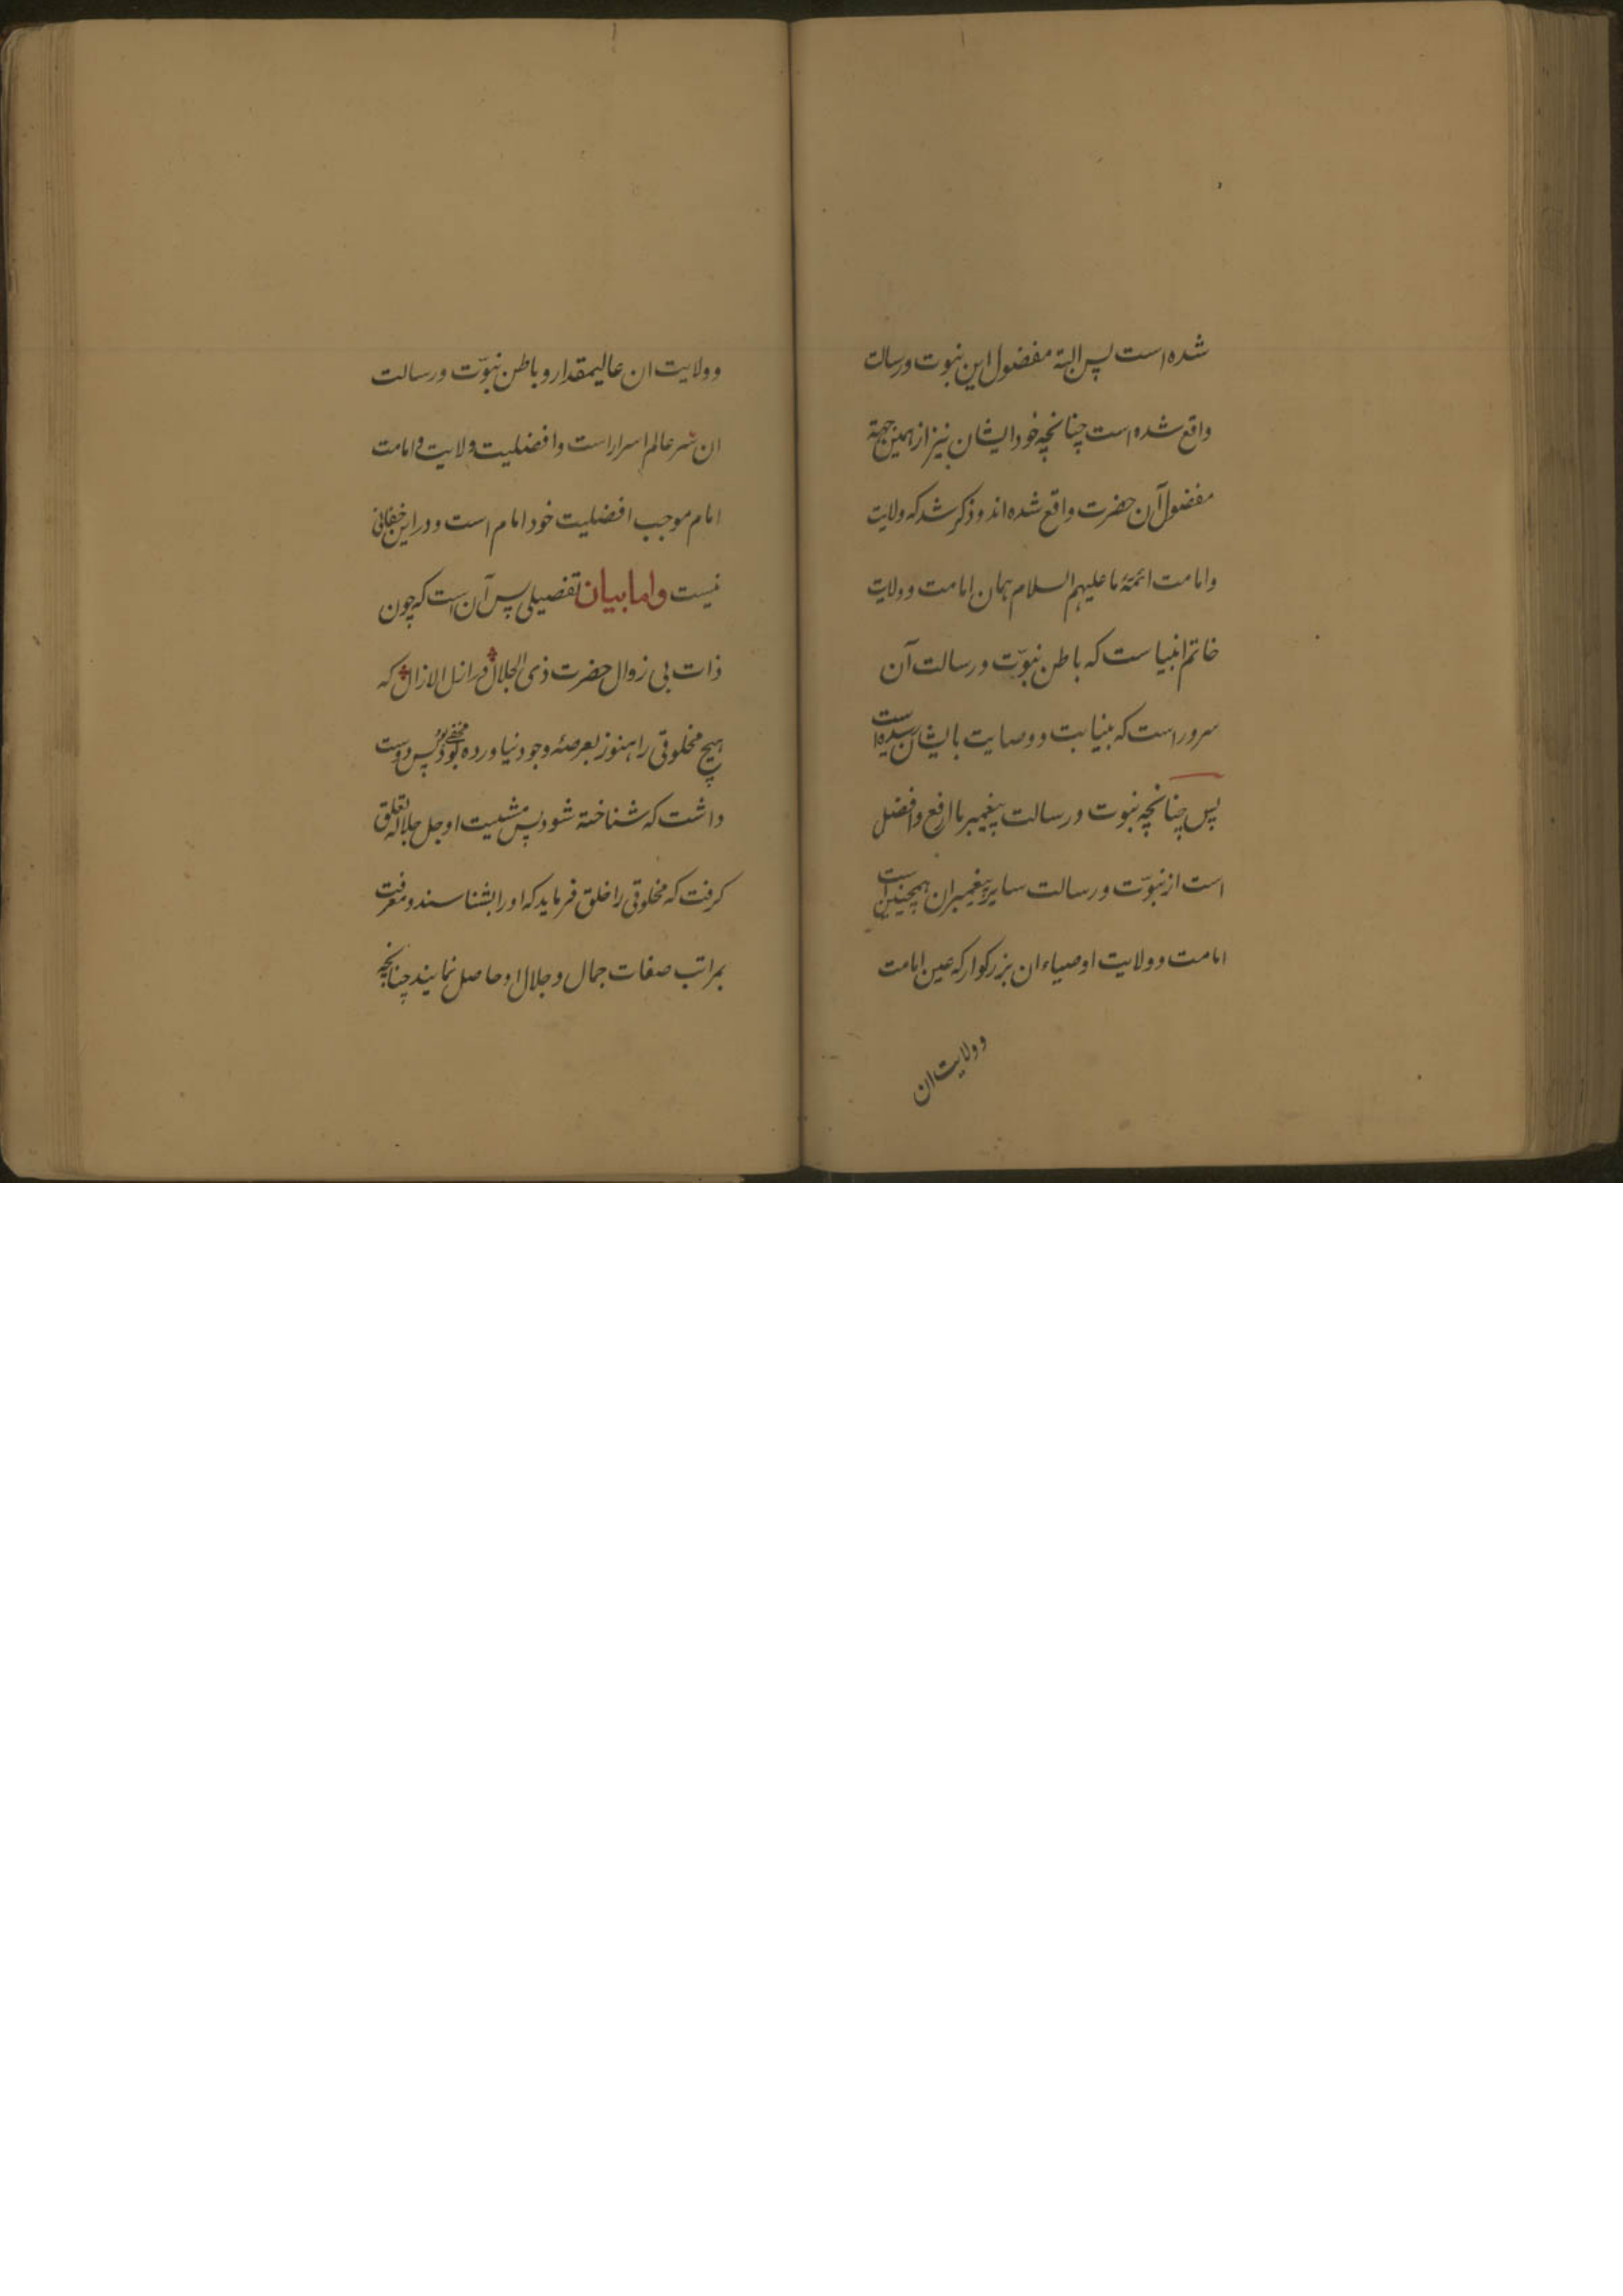 شده است پس البته مفضول این نبوت و رسالت
واقع شده است چنانچه خود ایشان نیز از همین جهة
مفضول آن حضرت واقع شده اند و ذکر شد که ولایت
و امامت ائمهٔ ما علیهم السلام همان امامت و ولایت
خاتم انبیاست که باطن نبوّت و رسالت آن
سرور است که بنیابت و وصایت بایشان رسیده است
پس چنانچه نبوت و رسالت پیغمبر ما ارفع و افضل
است از نبوّت و رسالت سایر پیغمبران همچنین است
امامت و ولایت اوصیاء ان بزرکوار که عین امامت
و ولایت ان
و ولایت ان عالیمقدار و باطن نبوّت و رسالت
ان سر عالم اسرار است و افضلیت ولایت و امامت
امام موجب افضلیت خود امام است و در این خفائی
نیست واما بیان تفصیلی پس آن است که چون
ذات بی زوال حضرت ذی الجلال در ازل الازال که
هیچ مخلوقی را هنوز بعرصهٔ وجود نیاورده بود مخفی بود پس دوست
داشت که شناخته شود پس مشیت او جل جلاله تعلق
کرفت که مخلوقی را خلق فرماید که او را بشناسند و معرفت
بمراتب صفات جمال و جلال او حاصل نمایند چنانچه